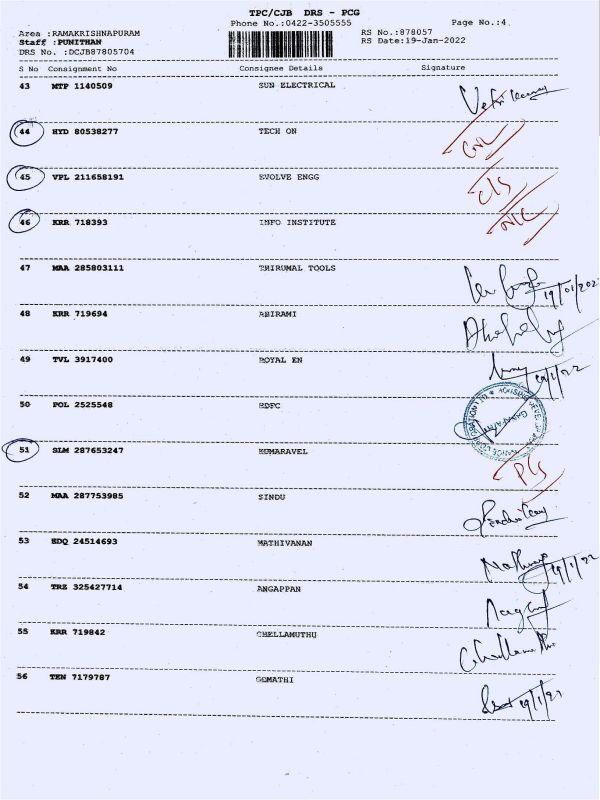 TPC/CJB DRS - PCG
Phone No.:0422-3505555 Page No.:4
Area :RAMAKRISHNAPURAM RS No.:878057
Staff :PUNITHAN RS Date:19-Jan-2022
DRS No. :DCJB87805704
S No Consignment No Consignee Details Signature
43 MTP 1140509 SUN ELECTRICAL
44 HYD 80538277 TECH ON
45 VPL 211658191 EVOLVE ENGG
46 KRR 718393 INFO INSTITUTE
47 MAA 285803111 THIRUMAL TOOLS
19/01/202
48 KRR 719694 ABIRAMI
49 TVL 3917400 ROYAL EN
19/1/22
50 POL 2525548 HDFC
51 SLM 287653247 KUMARAVEL
52 MAA 287753985 SINDU
53 HDQ 24514693 MATHIVANAN
19/1/22
54 TRZ 325427714 ANGAPPAN
55 KRR 719842 CHELLAMUTHU
56 TEN 7179787 GOMATHI
19/1/22